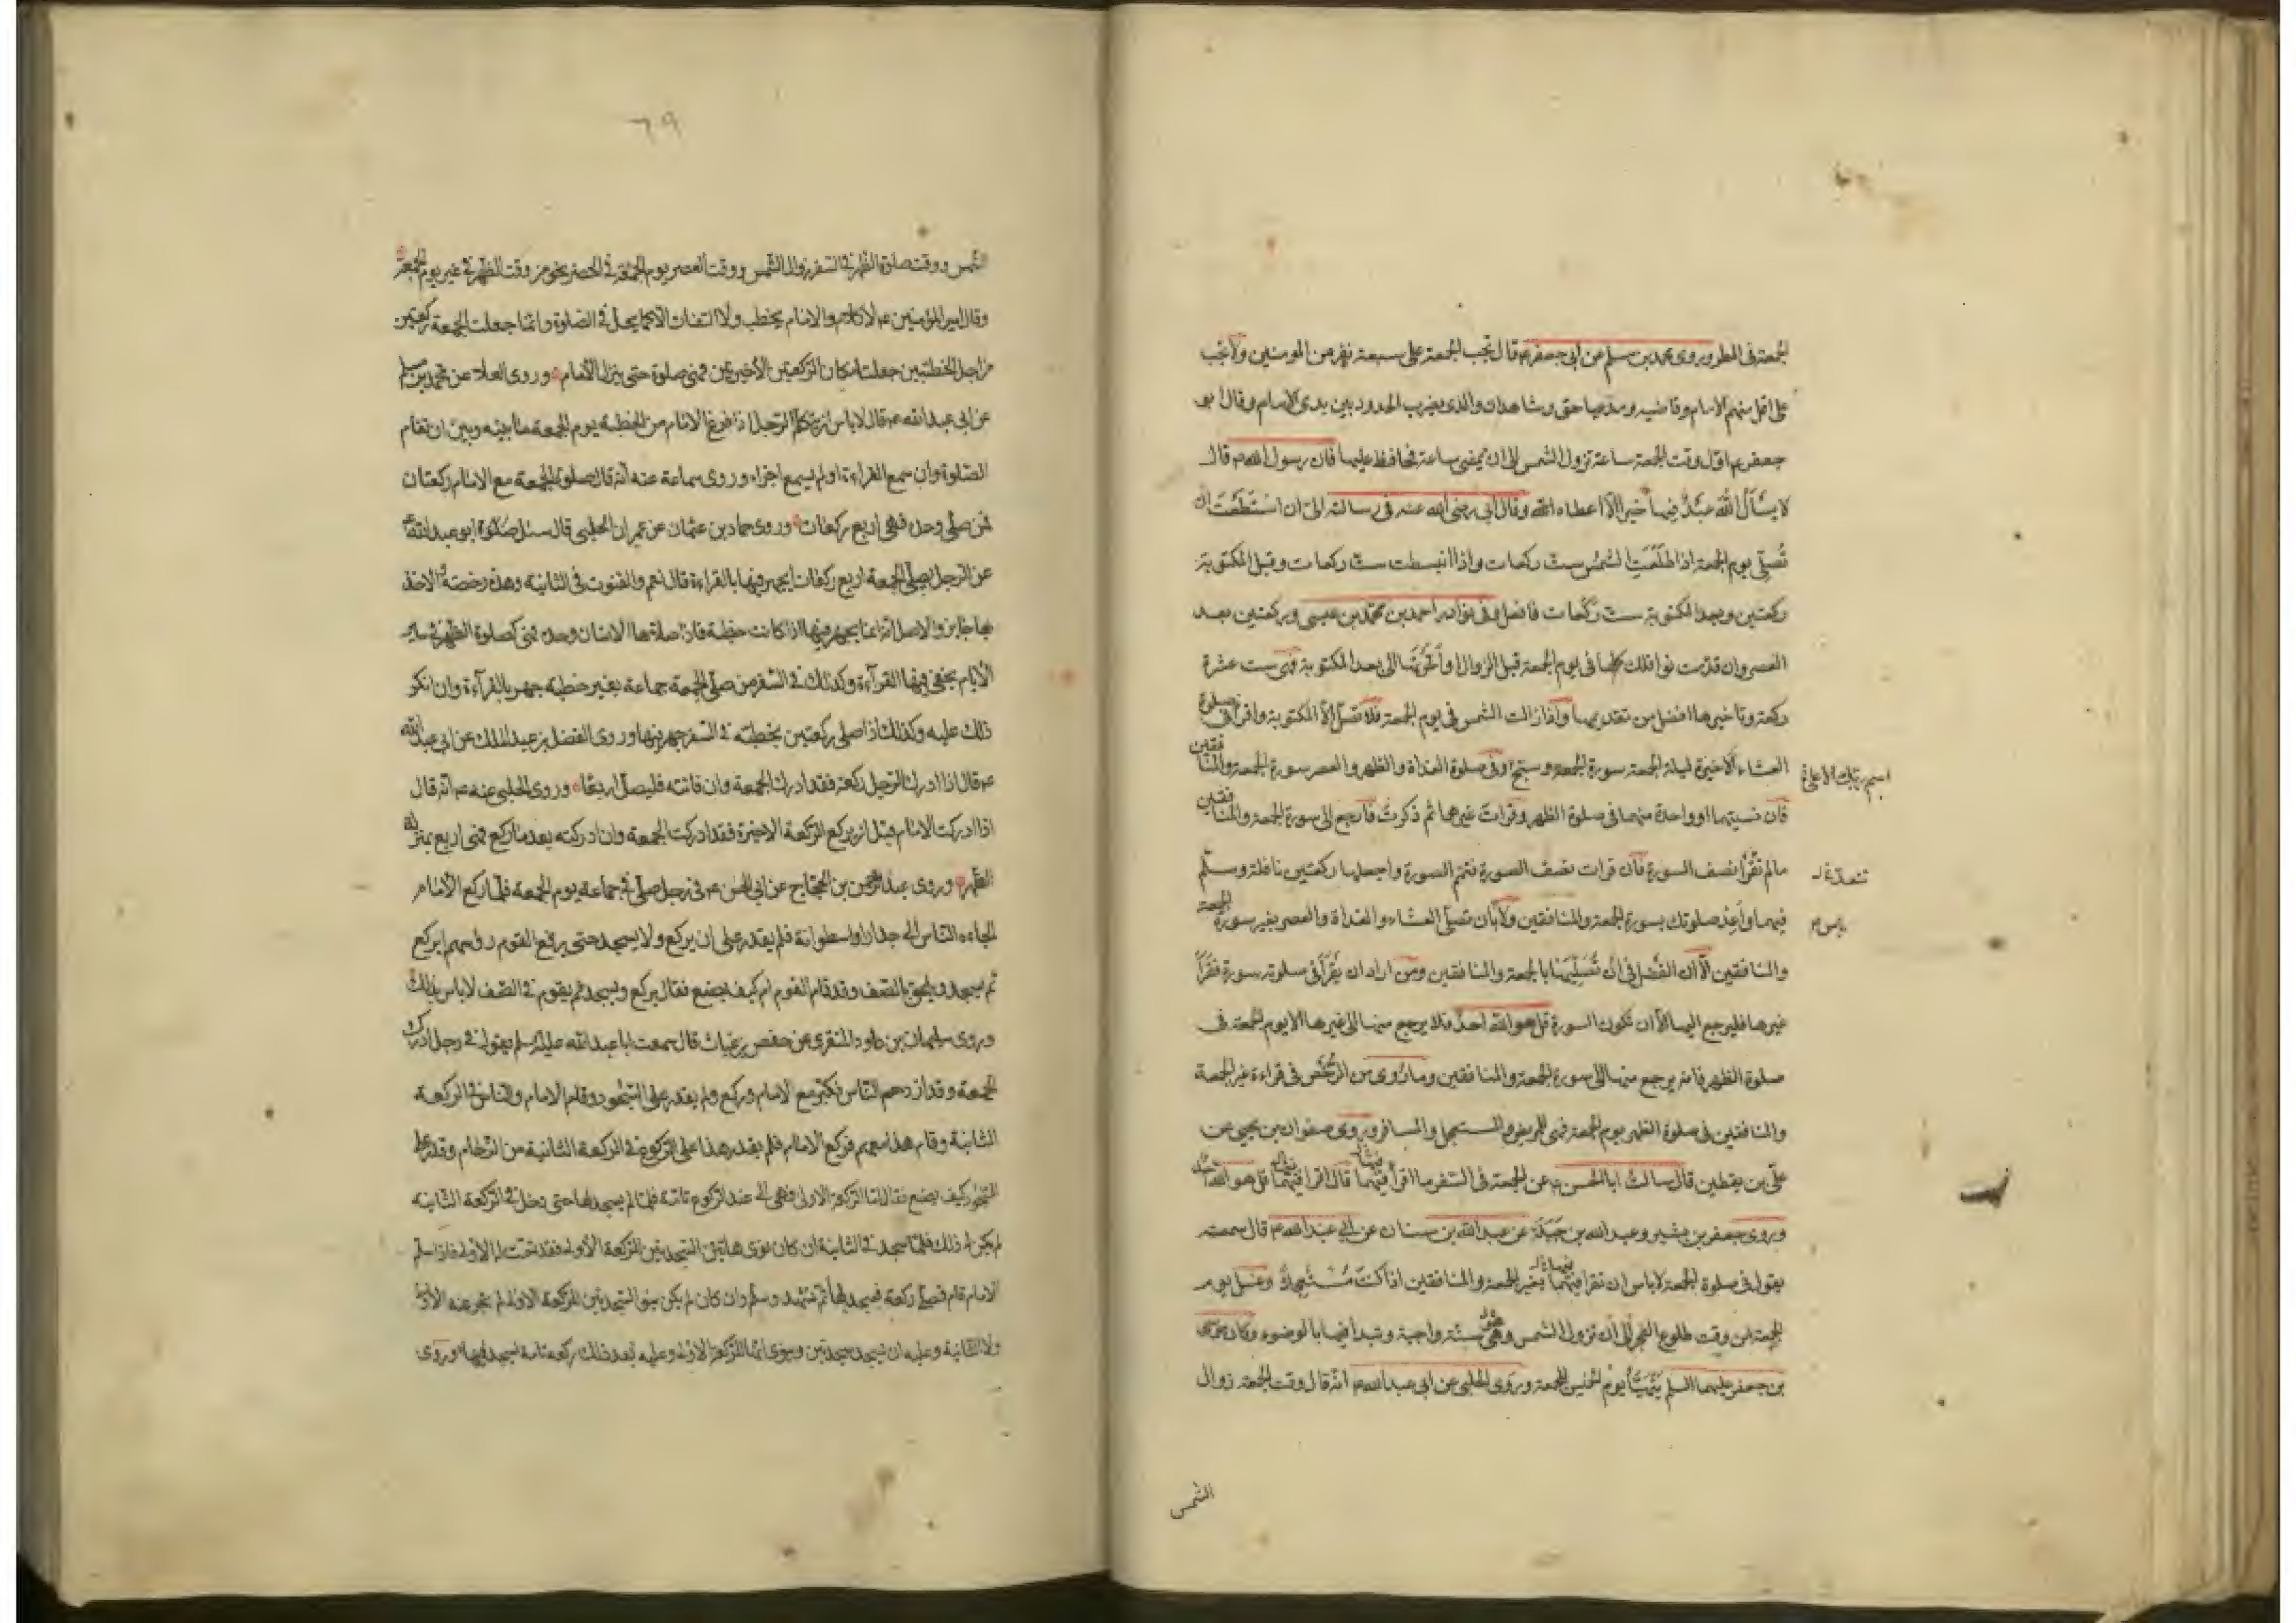 الجمعة فى المطر وروى محمد بن مسلم عن ابى جعفر ع قال تجب الجمعة على سبعة نفر من المومنين ولا تجب
على اقل منهم الامام وقاضيه ومدعيا حق وشاهدان والذى يضرب الحدود بين يدى الامام وقال ابو
جعفر ع اول وقت الجمعة ساعة تزول الشمس الى ان تمضى ساعة فحافظ عليها فان رسول الله ص قال
لا يسأل الله عبد فيها خيرا الا اعطاه الله وقال ابى رضى الله عنه فى رسالته الى ان استطعت ان
تصلى يوم الجمعة اذا طلعت الشمس ست ركعات واذا انبسطت ست ركعات وقبل المكتوبة
ركعتين وبعد المكتوبة ست ركعات فافعل وفى نوادر احمد بن محمد بن عيسى وركعتين بعد
العصر وان قدمت نوافلك كلها فى يوم الجمعة قبل الزوال او أخرتها الى بعد المكتوبة فهى ست عشرة
ركعة وتاخيرها افضل من تقديمها واذا زالت الشمس فى يوم الجمعة فلا تصل الا المكتوبة واقرأ فى صلوة
العشاء الاخيرة ليلة الجمعة سورة الجمعة وسبح وفى صلوة الغداة والظهر والعصر سورة الجمعة والمنافقين
اسم ربك الاعلى
فان نسيتهما او واحدة منهما فى صلوة الظهر وقرات غيرهما ثم ذكرت فارجع الى سورة الجمعة والمنافقين
مالم تقرأ نصف السورة فان قرات نصف السورة فتمم السورة واجعلها ركعتين نافلة وسلم
فيهما وأعد صلوتك بسورة الجمعة والمنافقين ولا بان تصلى العشاء والغداة والعصر بغير سورة الجمعة
باس
والمنافقين الا ان الفضل فى ان تصليها بالجمعة والمنافقين ومن اراد ان يقرأ فى صلوته سورة فقرأ
غيرها فليرجع اليها الا ان تكون السورة قل هو الله احد فلا يرجع منها الى غيرها الا يوم الجمعة فى
صلوة الظهر فانه يرجع منها الى سورة الجمعة والمنافقين وما روى من الرخص فى قراءة غير الجمعة
والمنافقين فى صلوة الظهر يوم الجمعة فهى للمريض والمستعجل والمسافر وروى صفوان بن يحيى عن
على بن يقطين قال سالت ابا الحسن ع عن الجمعة فى السفر ما اقرأ فيهما قال اقرا فيهما قل هو الله احد
وروى جعفر بن بشير وعبد الله بن جبلة عن عبد الله بن سنان عن ابى عبد الله ع قال سمعته
يقول فى صلوة الجمعة لا باس ان تقرا فيهما بغير الجمعة والمنافقين اذا كنت مستعجلا وغسل يوم
الجمعة من وقت طلوع الفجر الى ان تزول الشمس وهى سنة واجبة وتبدأ فيها بالوضوء وكان موسى
بن جعفر عليهما السلم يتهيأ يوم الخميس للجمعة وروى الحلبى عن ابى عبد الله ع انه قال وقت الجمعة زوال
الشمس
٦٩
الشمس ووقت صلوة الظهر فى السفر زوال الشمس ووقت العصر يوم الجمعة فى الحضر نحو من وقت الظهر فى غير يوم الجمعة
وقال امير المؤمنين ع لا كلام والامام يخطب ولا التفات الا كما يحل فى الصلوة وانما جعلت الجمعة ركعتين
من اجل الخطبتين جعلت مكان الركعتين الأخيرتين فهى صلوة حتى ينزل الامام وروى العلا عن محمد بن مسلم
عن ابى عبد الله ع قال لا باس ان يتكلم الرجل اذا فرغ الامام من الخطبة يوم الجمعة ما بينه وبين ان تقام
الصلوة وان سمع القراءة او لم يسمع اجزاه وروى سماعة عنه انه قال صلوة الجمعة مع الامام ركعتان
فمن صلى وحده فهى اربع ركعات وروى حماد بن عثمان عن عمران الحلبى قال سئل ابو عبد الله ع
عن الرجل يصلى الجمعة اربع ركعات ايجهر فيها بالقراءة قال نعم والقنوت فى الثانية وهذه رخصة الاخذ
بها جايز والاصل انه انما يجهر فيها اذا كانت خطبة فاذا صلاها الانسان وحده فهى كصلوة الظهر فى ساير
الأيام يخفى فيها القرآءة وكذلك فى السفر من صلى الجمعة جماعة بغير خطبة جهر بالقرآءة وان انكر
ذلك عليه وكذلك اذا صلى ركعتين بخطبة فى السفر جهر فيها وروى الفضل بن عبد الملك عن ابى عبد الله
ع قال اذا ادرك الرجل ركعة فقد ادرك الجمعة وان فاتته فليصل اربعا وروى الحلبى عنه ع انه قال
اذا ادركت الامام قبل ان يركع الركعة الاخيرة فقد ادركت الجمعة وان ادركته بعد ما ركع فهى اربع بمنزلة
الظهر وروى عبد الرحمن بن الحجاج عن ابى الحسن ع فى رجل صلى فى جماعة يوم الجمعة فلما ركع الامام
الجاءه الناس الى جدار او اسطوانة فلم يقدر على ان يركع ولا يسجد حتى يرفع القوم رؤسهم ايركع
ثم يسجد ويلحق بالصف وقد قام القوم ام كيف يصنع فقال يركع ويسجد ثم يقوم فى الصف لا باس بذلك
وروى سليمان بن داود المنقرى عن حفص بن غياث قال سمعت ابا عبد الله عليه السلم يقول فى رجل ادرك
الجمعة وقد ازدحم الناس فكبر مع الامام وركع ولم يقدر على السجود وقام الامام والناس فى الركعة
الثانية وقام هذا معهم فركع الامام فلم يقدر هذا على الركوع فى الركعة الثانية من الزحام وقدر على
السجود كيف يصنع فقال اما الركعة الاولى فهى الى عند الركوع تامة فلما لم يسجد لها حتى دخل فى الركعة الثانية
لم يكن له ذلك فلما سجد فى الثانية ان كان نوى هاتين السجدتين للركعة الأولى فقد تمت له الأولى فاذا سلم
الامام قام فصلى ركعة فيسجد لها ثم يتشهد وسلم وان كان لم يكن ينو السجدتين للركعة الاولى لم تجز عنه الأولى
ولا الثانية وعليه ان يسجد سجدتين وينوى انهما للركعة الاولى وعليه بعد ذلك ركعة تامة يسجد فيها وروى